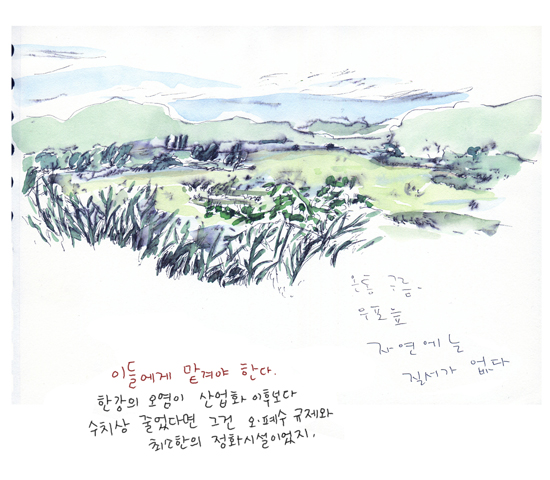 온통 구름.
우포늪
자연에는
질서가 없다
이들에게 맡겨야 한다.
한강의 오염이 산업화 이후보다
수치상 줄었다면 그건 오·폐수 규제와
최소한의 정화시설이었지.